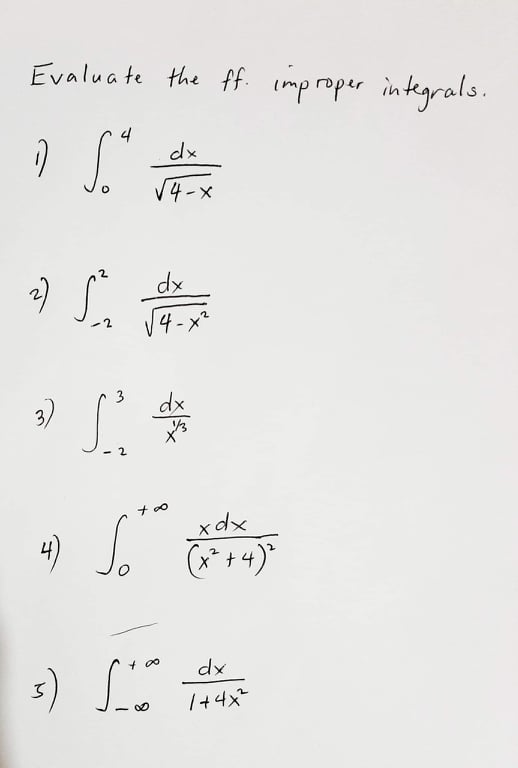 Evaluate the ff. improper integrals.
1) ∫₀⁴ dx/√(4-x)
2) ∫₋₂² dx/√(4-x²)
3) ∫₋₂³ dx/x^(1/3)
4) ∫₀^(+∞) xdx/(x²+4)²
5) ∫₋∞^(+∞) dx/(1+4x²)